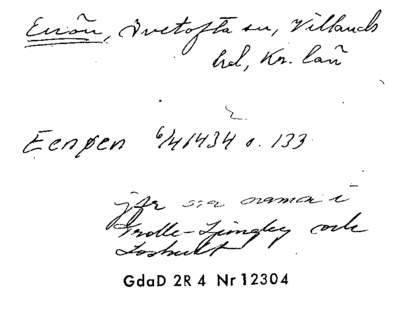 Enön, Ivetofta sn, Villands
hd, Kr. län
Eenøen 6/4 1434 s. 133
jfr ssa namn i
Trolle-Ljungby och
Loshult
GdaD 2R4 Nr 12304